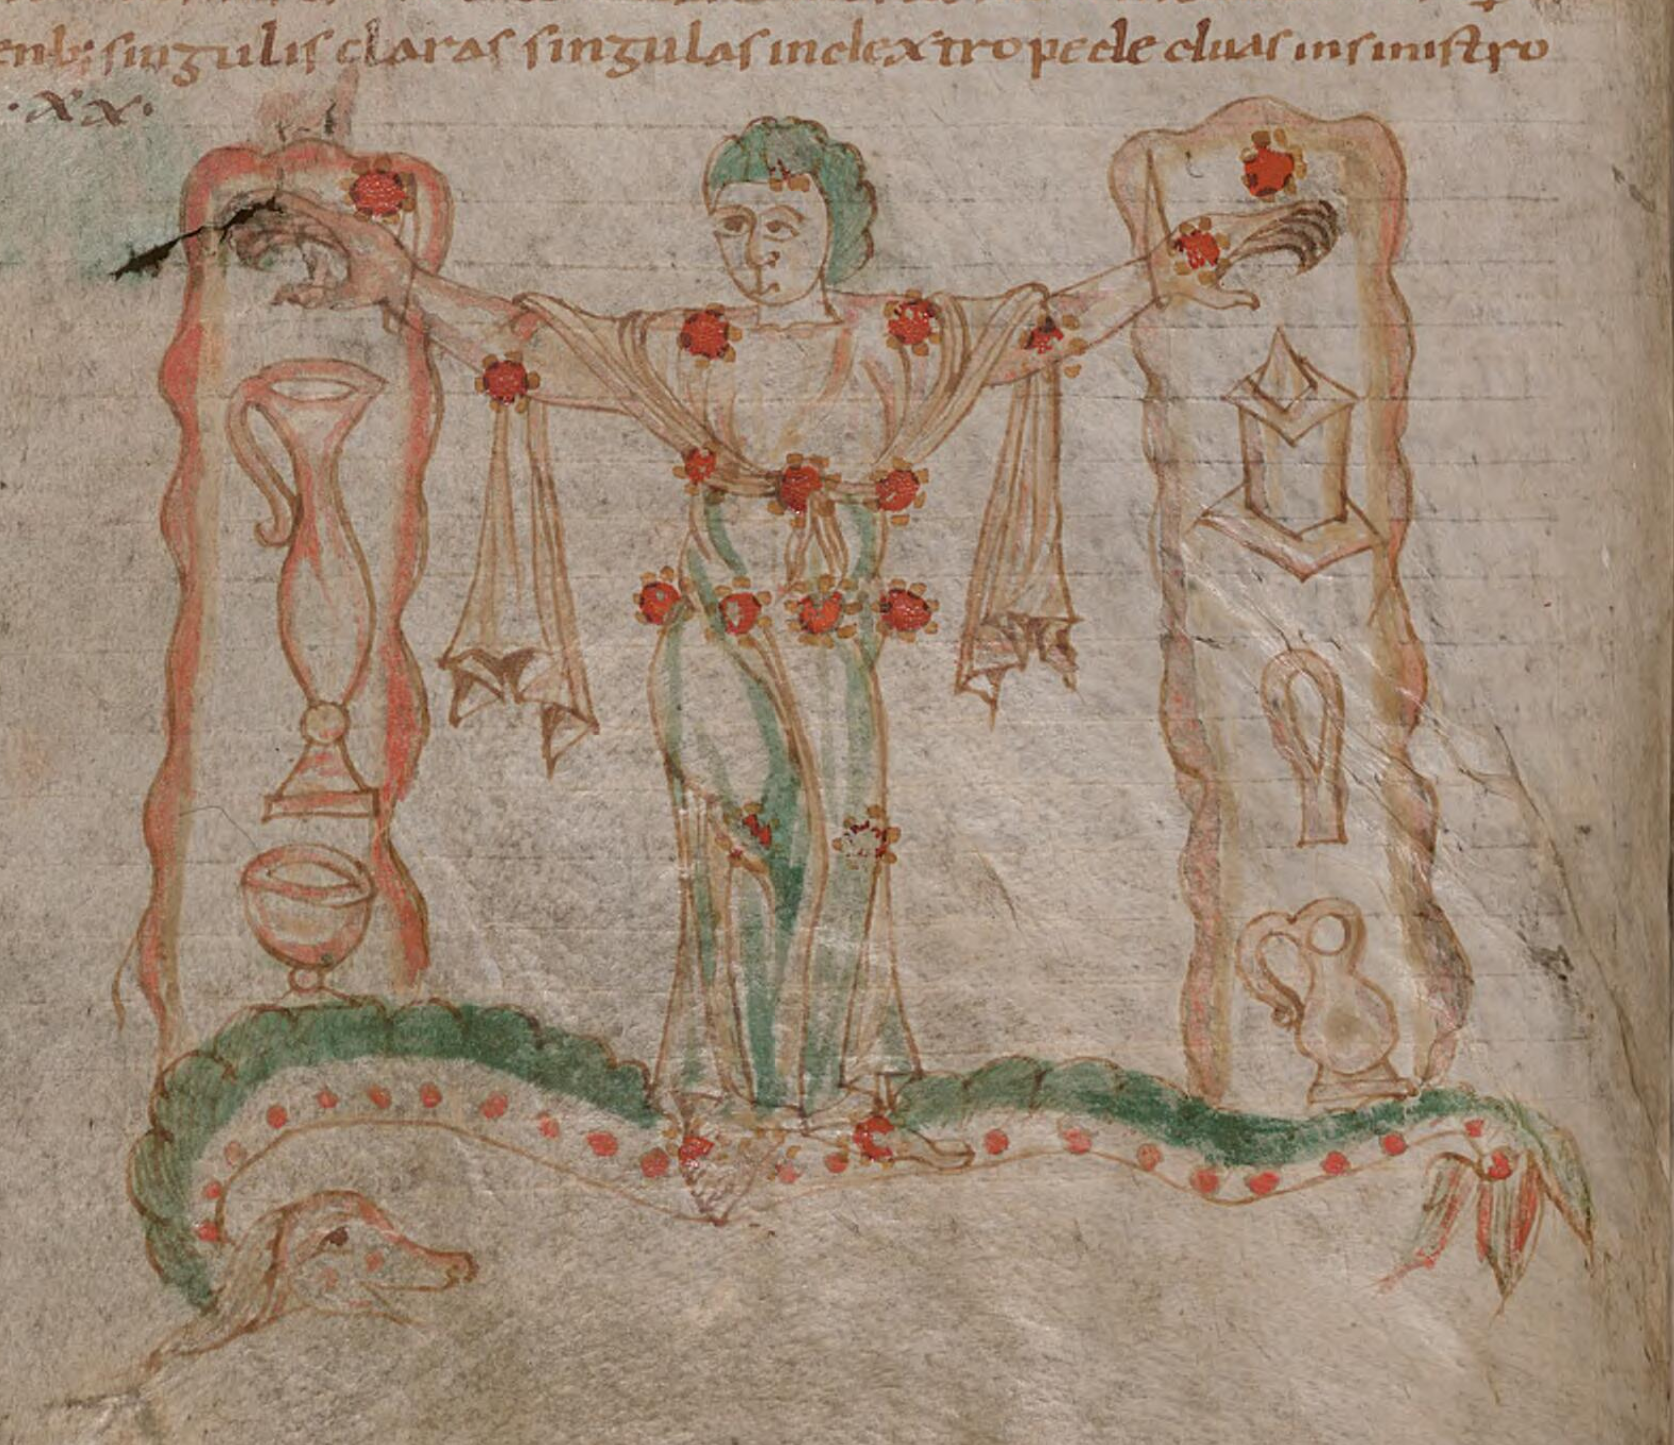 enb; singulis claras singulas in dextro pede duas in sinistro
· xx·